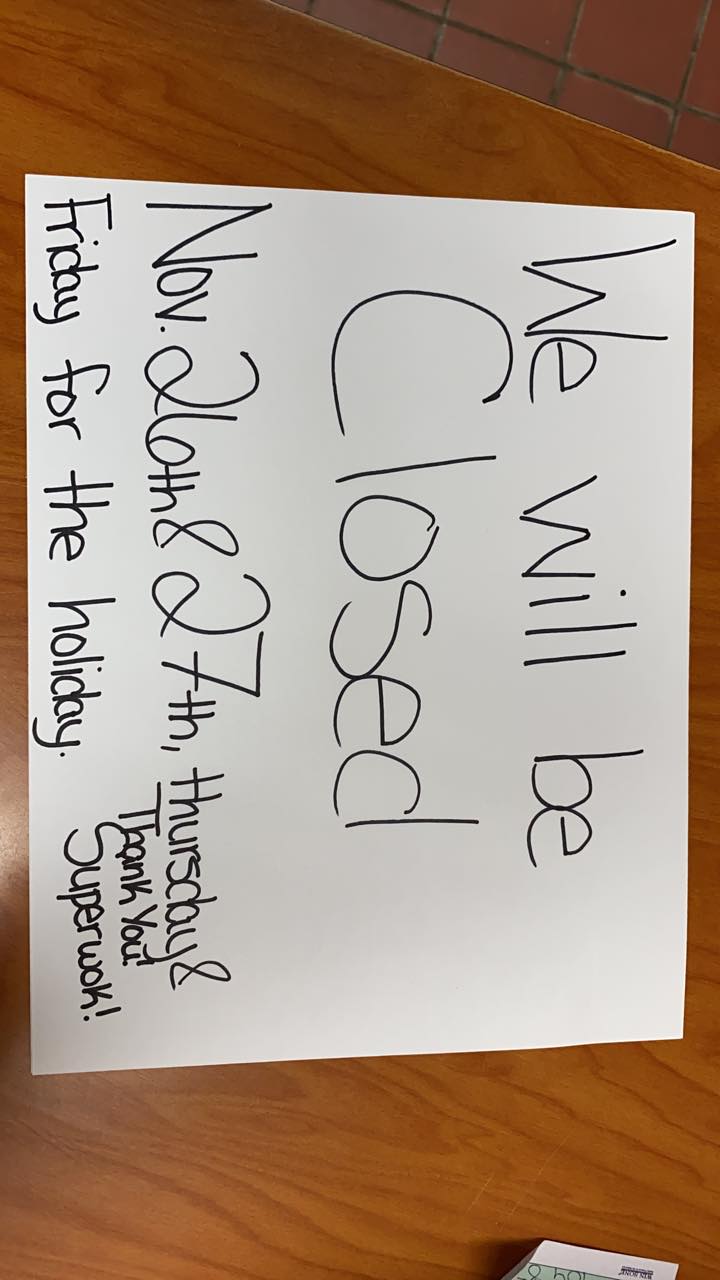 We will be
Closed
Nov. 26th & 27th, thursday &
Friday for the holiday.
Thank You!
Superwok!